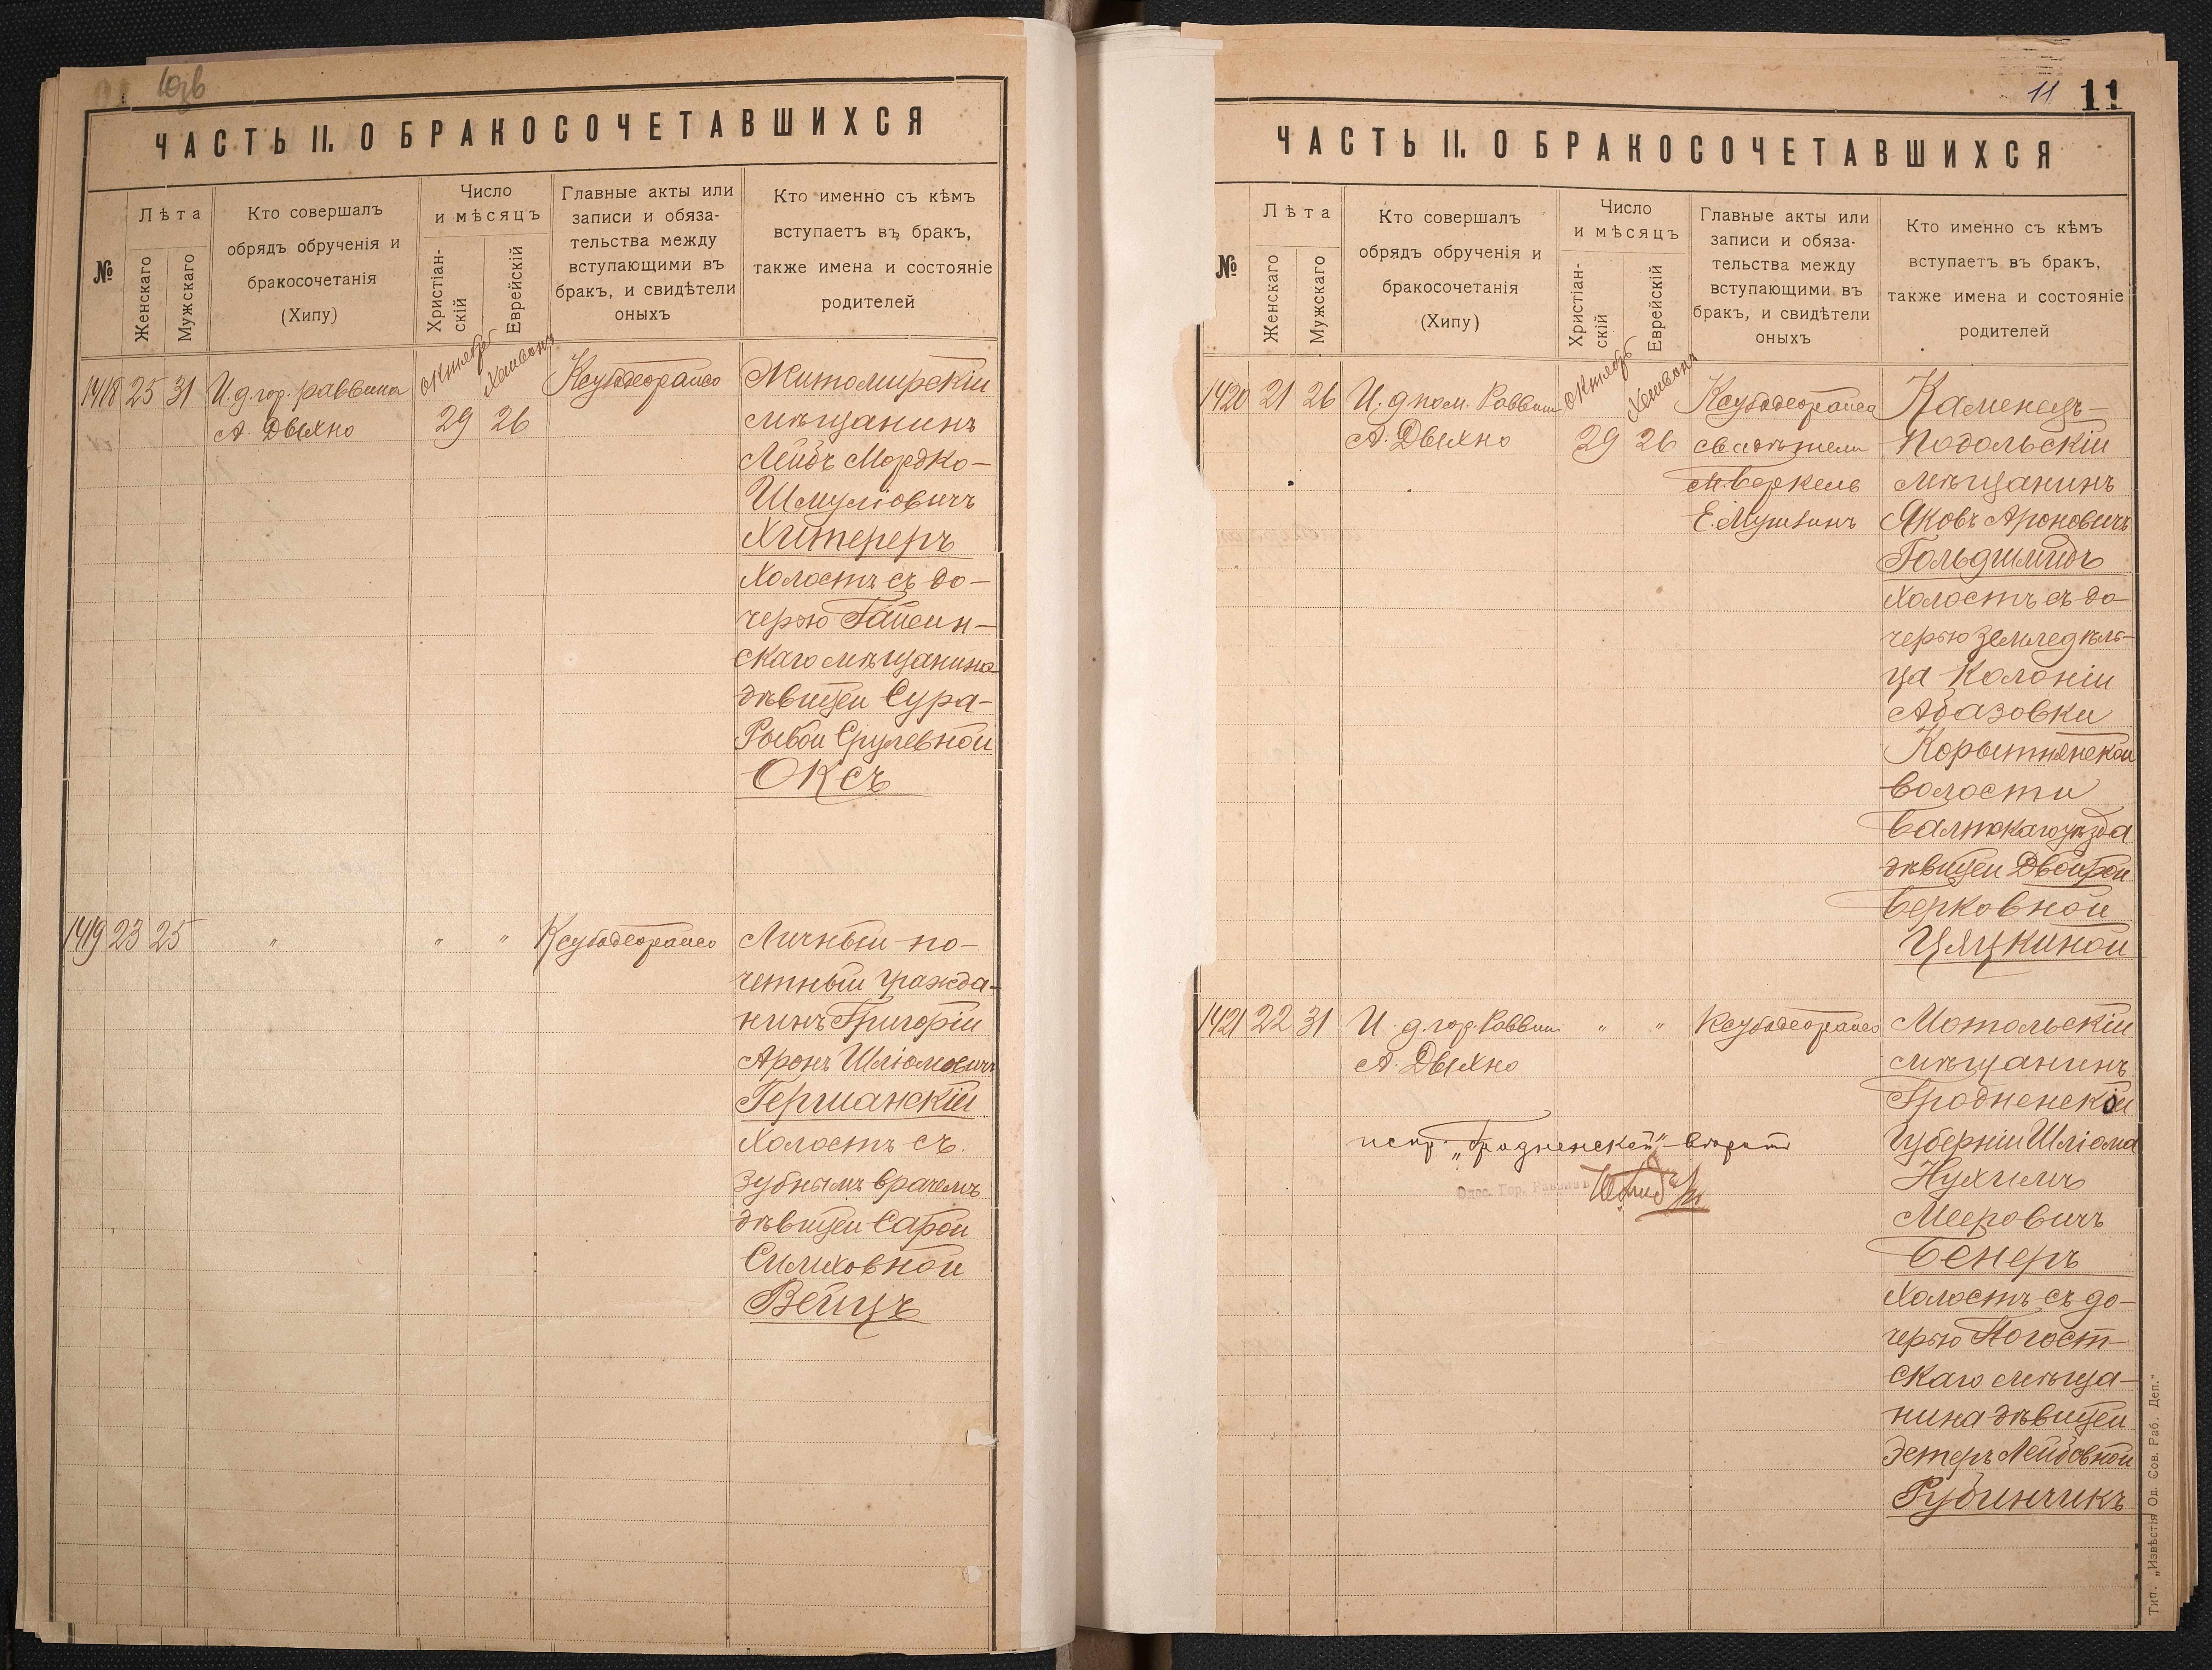 10зв
ЧАСТЬ II. О БРАКОСОЧЕТАВШИХСЯ
№
Лѣта
Женскаго
Мужскаго
Кто совершалъ
обрядъ обрученія и
бракосочетанія
(Хипу)
Число
и мѣсяцъ
Христіан-
скій
Еврейскій
Главные акты или
записи и обяза-
тельства между
вступающими въ
бракъ, и свидѣтели
оныхъ
Кто именно съ кѣмъ
вступаетъ въ бракъ,
также имена и состояніе
родителей
1418 25 31
И. д. гор. раввина
А. Двыхно
октябрь
Хешвонъ
29 26
Ксубадеорайсо
Житомирскій
мѣщанинъ
Лейбъ Мордко-
Шмуліовичъ
Хитереръ
Холостъ съ до-
черью Гайсин-
скаго мѣщанина
дѣвицей Сура-
Рывой Срулевной
Оксъ
1419 23 25
"
" "
Ксубадеорайсо
Личный по-
четный гражда-
нинъ Григорій
Аронъ Шліомовичъ
Германскій
Холостъ съ
зубнымъ врачемъ
дѣвицей Сарой
Симховной
Вейцъ
11 11
ЧАСТЬ II. О БРАКОСОЧЕТАВШИХСЯ
№
Лѣта
Женскаго
Мужскаго
Кто совершалъ
обрядъ обрученія и
бракосочетанія
(Хипу)
Число
и мѣсяцъ
Христіан-
скій
Еврейскій
Главные акты или
записи и обяза-
тельства между
вступающими въ
бракъ, и свидѣтели
оныхъ
Кто именно съ кѣмъ
вступаетъ въ бракъ,
также имена и состояніе
родителей
1420 21 26
И. д пом. Раввина
А. Двыхно
октябрь
Хешвонъ
29 26
Ксубадеорайса
свидѣтели
М. Беркель
Е. Мушкинъ
Каменецъ-
Подольскій
мѣщанинъ
Яковъ Ароновичъ
Гольдшмидъ
Холостъ съ до-
черью земледѣль-
ца Колоніи
Абазовки
Корытнянской
волости
Балтскаго уѣзда
дѣвицей Двойрой
Берковной
Цяцкиной
1421 22 31
И. д. гор. Раввина
А. Двыхно
" "
Ксубадеорайсо
Мотольскій
мѣщанинъ
Гродненской
Губерніи Шліома
Нухимъ
Мееровичъ
Бенеръ
Холостъ съ до-
черью Погост-
скаго мѣща-
нина дѣвицей
Эстеръ Лейбовной
Рубинчикъ
испр. „Гродненской" вѣрить
Одес. Гор. Раввинъ
Тип. „Извѣстія Од. Сов. Раб. Деп."